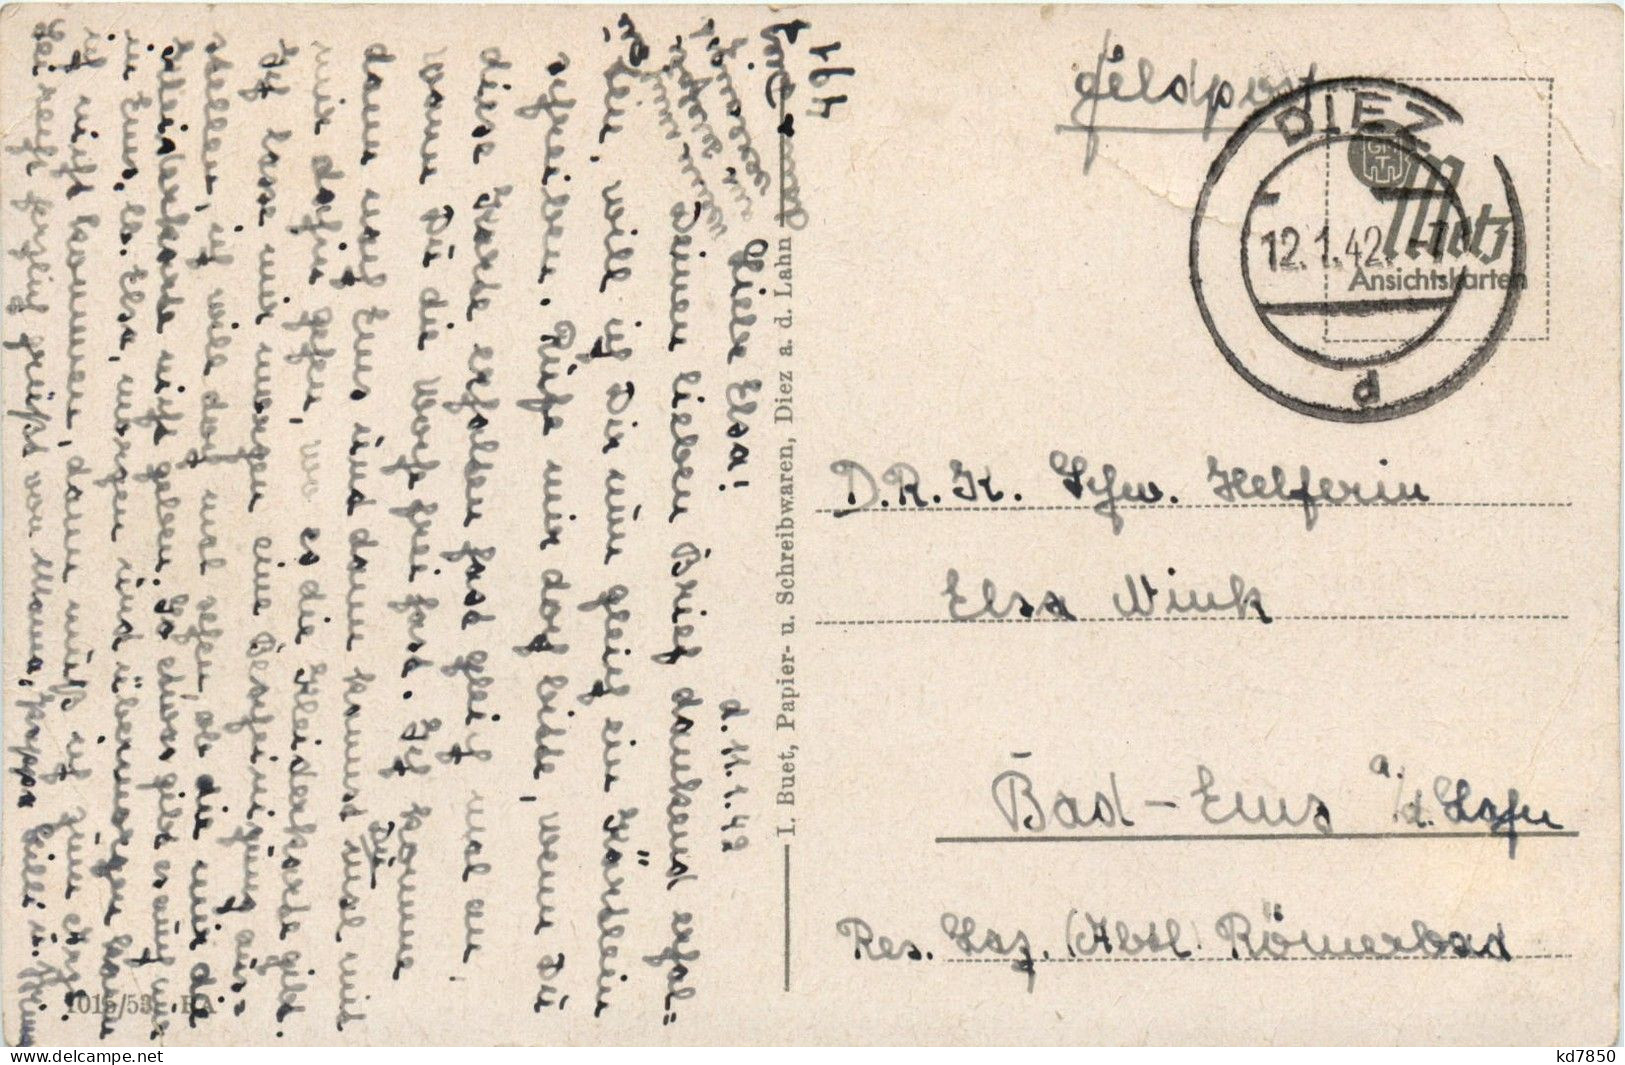 Feldpost
DIEZ
12.1.42.-7
d
GMT
Metz
Ansichtskarten
D.R.K. Schw. Helferin
Elsa Wink
Bad-Ems a./d. Lahn
Res. Laz. (Abtl. Römerbad
I. Buet, Papier- u. Schreibwaren, Diez a. d. Lahn
d. 11.1.42
Liebe Elsa!
Deinen lieben Brief dankend erhal=
ten, will ich Dir nun gleich ein Kärtlein
schreiben. Rufe mir doch bitte, wenn Du
diese Karte erhalten hast gleich mal an,
wann Du die Woche frei hast. Ich komme
dann nach Ems und dann kannst Du mal mit
mir dahin gehen, wo es die Kleiderkarte gibt.
Ich lasse mir morgen eine Bescheinigung aus=
stellen, ich will doch mal sehen, ob die mir die
Kleiderkarte nicht geben. So etwas gibt es auch nur
in Ems, lb. Elsa, morgen und übermorgen kann
ich nicht kommen, dann muß ich zum Arzt.
Sei recht herzlich grüßt von Mama, Papa Willi u.
1015/53 RA